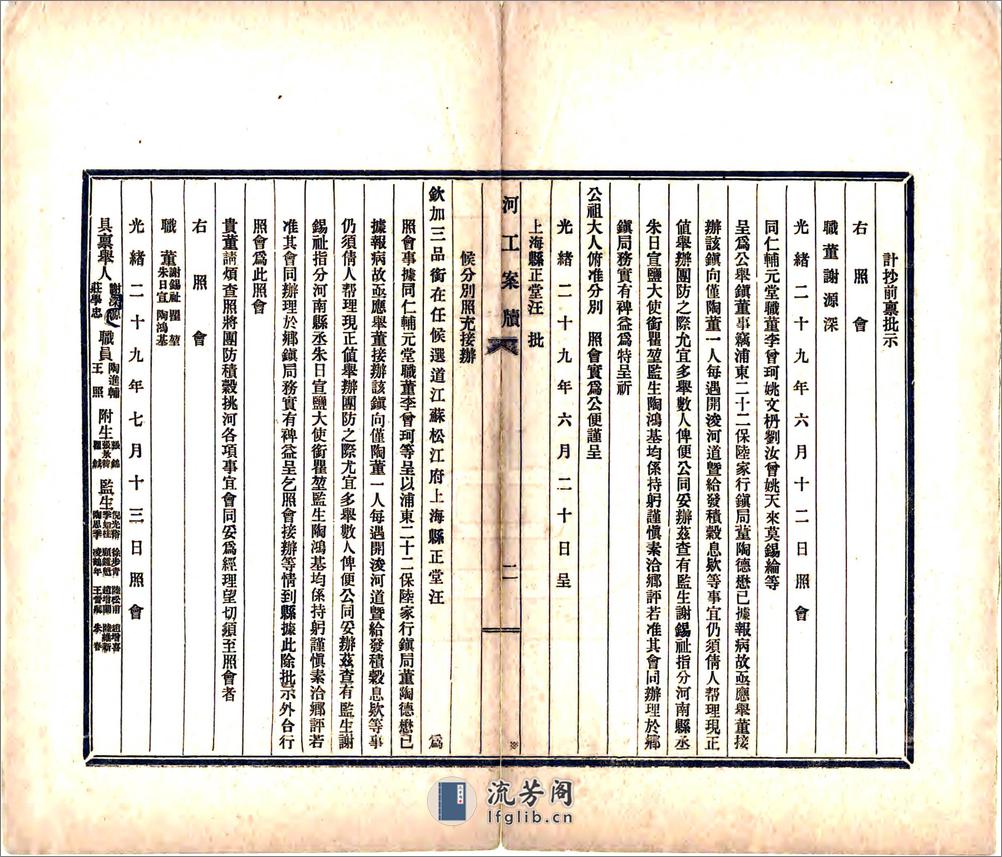 計抄前稟批示
右照會
職董謝源深
光緒二十九年六月十二日照會
同仁輔元堂職董李曾珂姚文枬劉汝曾姚天來莫錫綸等
呈爲公舉鎮董事竊浦東二十二保陸家行鎮局董陶德懋已據報病故亟應舉董接
辦該鎮向僅陶董一人每遇開浚河道曁給發積穀息欵等事宜仍須倩人帮理現正
值舉辦團防之際尤宜多舉數人俾便公同妥辦茲查有監生謝錫祉指分河南縣丞
朱日宣鹽大使銜瞿堃監生陶鴻基均係持躬謹愼素洽鄉評若准其會同辦理於鄉
鎮局務實有裨益爲特呈祈
公祖大人俯准分別照會實爲公便謹呈
光緒二十九年六月二十日呈
上海縣正堂汪批
河工案牘
二
候分別照充接辦
欽加三品銜在任候選道江蘇松江府上海縣正堂汪爲
照會事據同仁輔元堂職董李曾珂等呈以浦東二十二保陸家行鎮局董陶德懋已
據報病故亟應舉董接辦該鎮向僅陶董一人每遇開浚河道曁給發積穀息欵等事
仍須倩人帮理現正值舉辦團防之際尤宜多舉數人俾便公同妥辦茲查有監生謝
錫祉指分河南縣丞朱日宣鹽大使銜瞿堃監生陶鴻基均係持躬謹愼素洽鄉評若
准其會同辦理於鄉鎮局務實有裨益呈乞照會接辦等情到縣據此除批示外合行
照會爲此照會
貴董請煩查照將團防積穀挑河各項事宜會同妥爲經理望切須至照會者
右照會
職董謝錫祉瞿堃朱日宣陶鴻基
光緒二十九年七月十三日照會
具稟舉人謝源深莊學忠職員陶進輔王照附生張錦張永監生倪光徐步青陸松甫趙增喜季如桂顧趙增陸維新陶思季凌鶴年王朱春
流芳阁
lfglib.cn